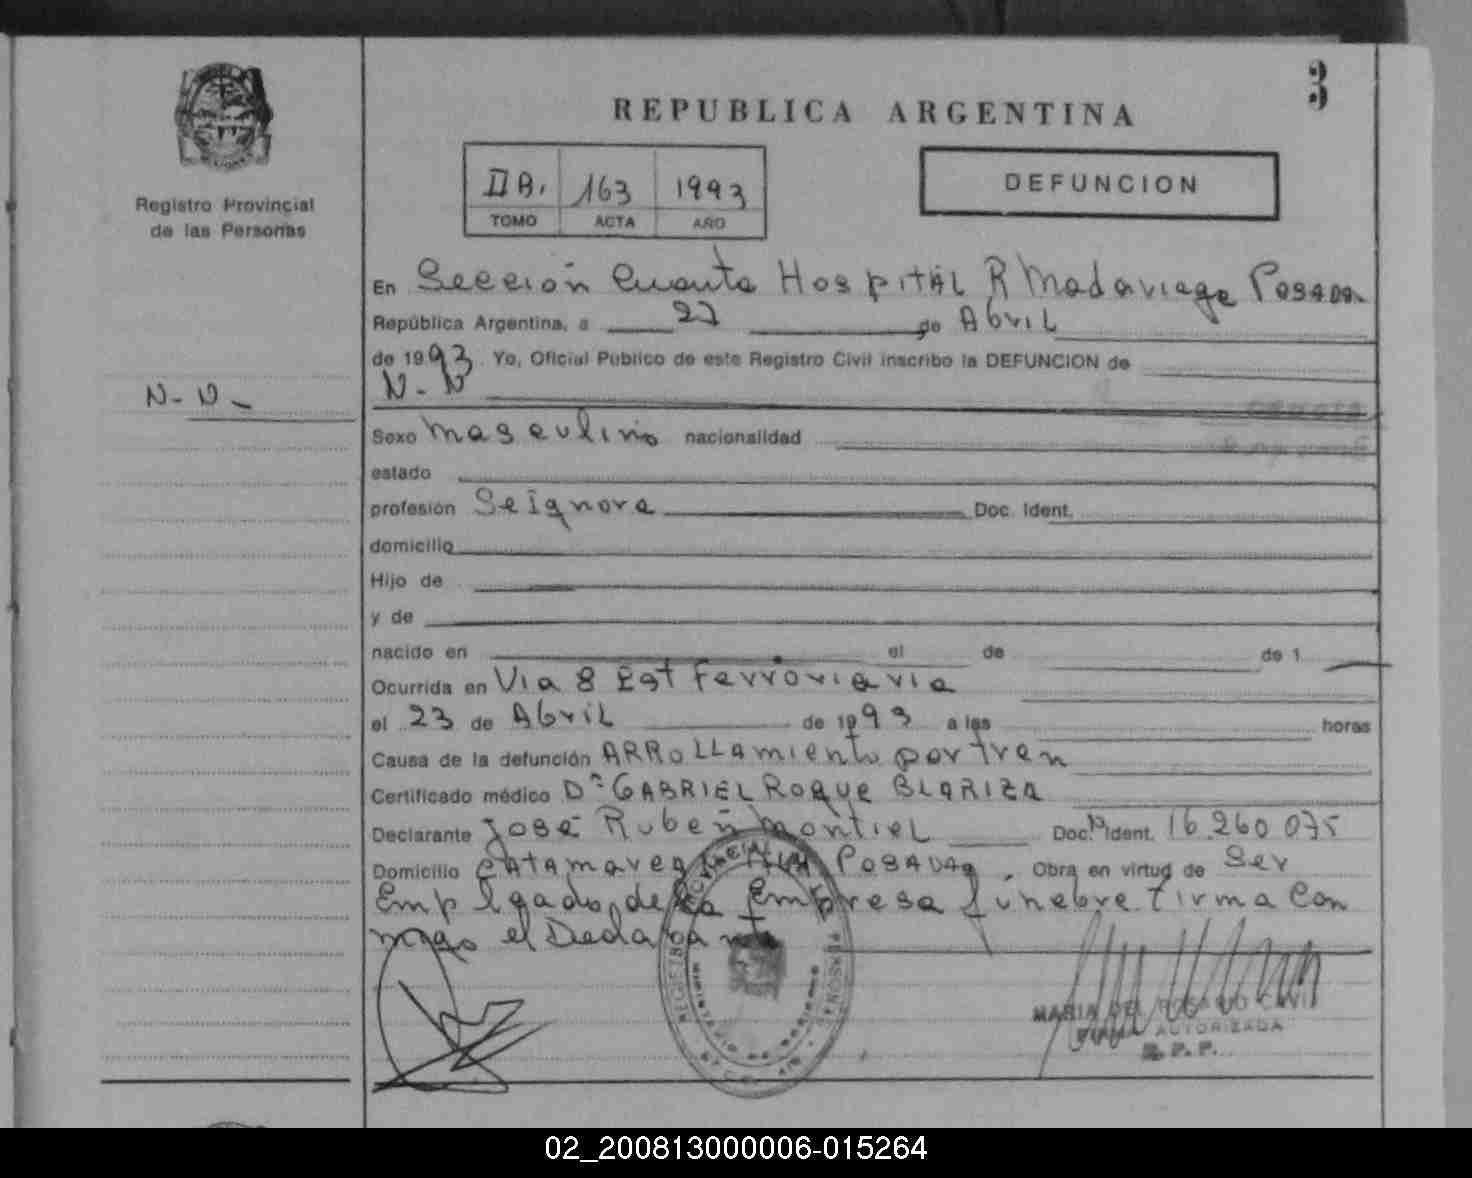 3
REPUBLICA ARGENTINA
II A. 163 1993
TOMO ACTA AÑO
DEFUNCION
Registro Provincial
de las Personas
En Sección Cuarta Hospital R Madariaga Posadas
República Argentina, a 27 de Abril
de 1993. Yo, Oficial Público de este Registro Civil inscribo la DEFUNCION de
N-N-
N-N
Sexo Masculino nacionalidad
estado
profesión Se ignora Doc. Ident.
domicilio
Hijo de
y de
nacido en el de de 1
Ocurrida en Via 8 Est Ferroviaria
el 23 de Abril de 1993 a las horas
Causa de la defunción ARROLLamiento por tren
Certificado médico Dr GABRIEL Roque BLARIZA
Declarante José Rubén Montiel Doc. Ident. 16.260.075
Domicilio CATAMARCA Posadas. Obra en virtud de Ser
Empleado de la Empresa fúnebre firma Con
migo el Declarante
MARIA DEL ROSARIO
FIRMA AUTORIZADA
R.P.P.
02_200813000006-015264